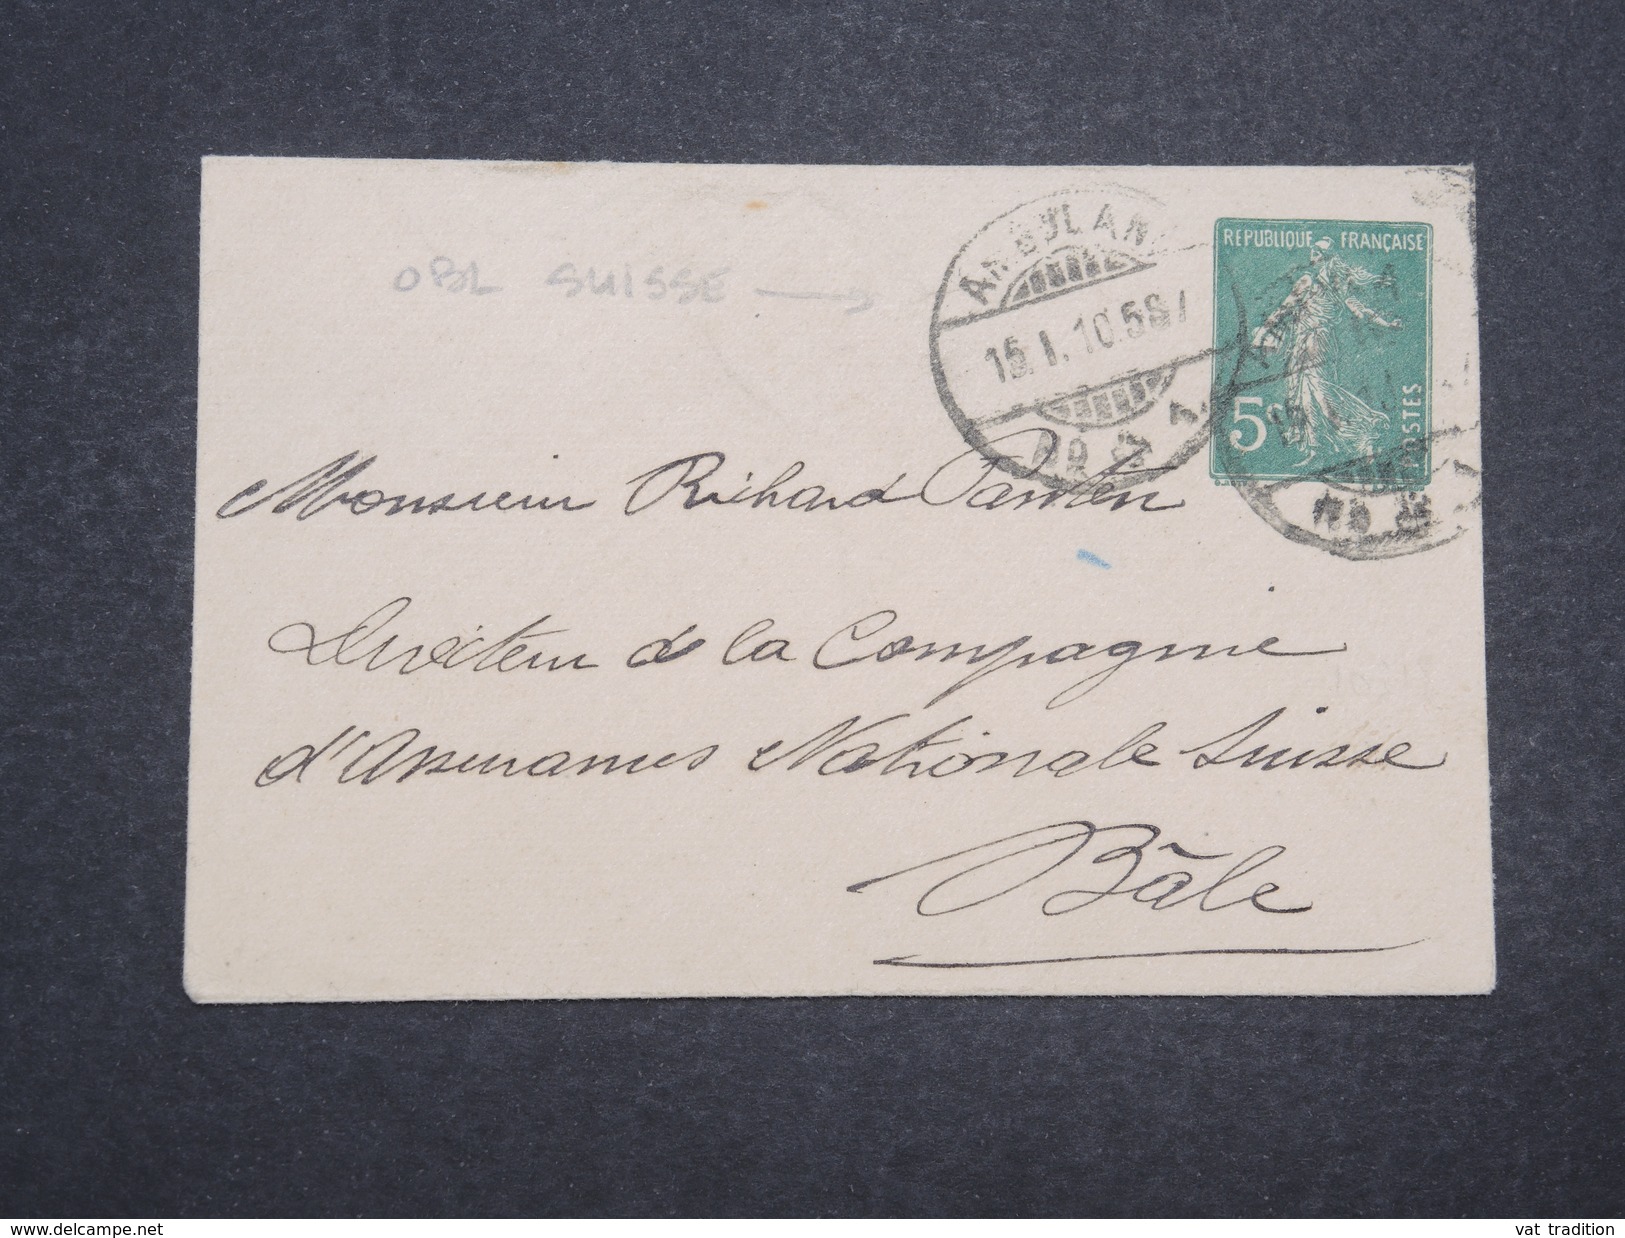 OBL SUISSE
AMBULANT
15.I.10.
No
RÉPUBLIQUE FRANÇAISE
5c POSTES
Monsieur Richard
Directeur de la Compagnie
d'Assurances Nationale Suisse
Bâle
delcampe.net
vat_tradition